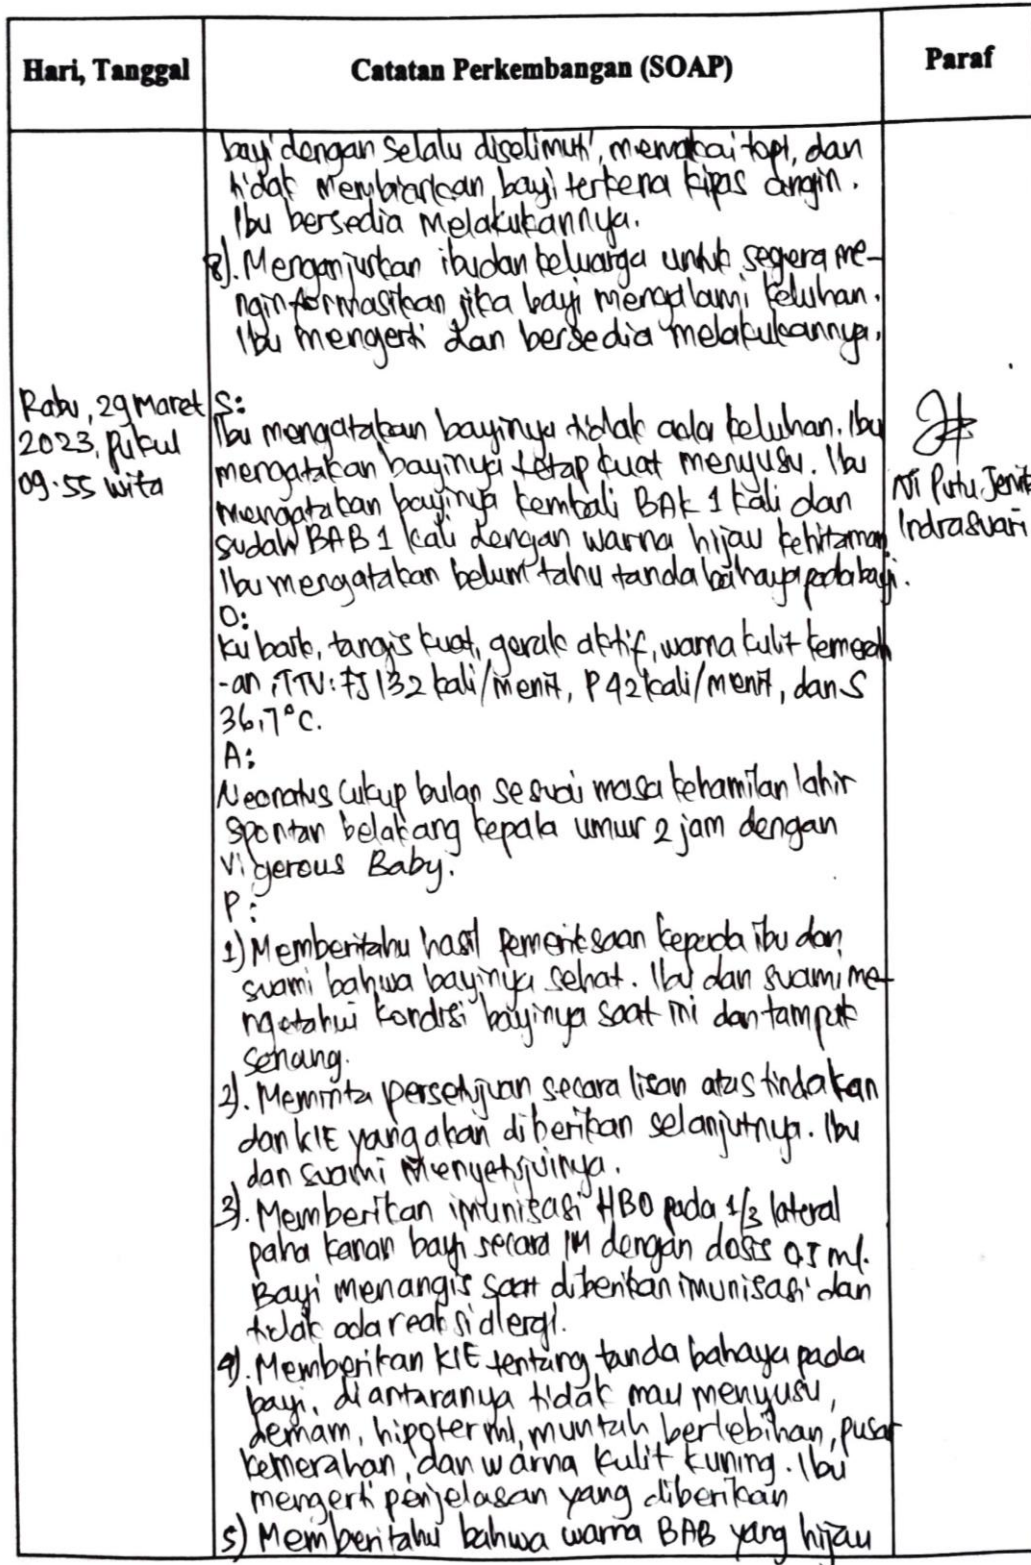 Hari, Tanggal
Catatan Perkembangan (SOAP)
Paraf
bayi dengan selalu diselimuti, memakai topi, dan
tidak membiarkan bayi terkena kipas angin.
Ibu bersedia melakukannya.
8). Menganjurkan ibu dan keluarga untuk segera me-
nginformasikan jika bayi mengalami keluhan.
Ibu mengerti dan bersedia melakukannya.
Rabu, 29 Maret
2023, Pukul
09.55 wita
S:
Ibu mengatakan bayinya tidak ada keluhan. Ibu
mengatakan bayinya tetap kuat menyusu. Ibu
mengatakan bayinya kembali BAK 1 kali dan
sudah BAB 1 kali dengan warna hijau kehitaman
Ibu mengatakan belum tahu tanda bahaya pada bayi.
O:
KU baik, tangis kuat, gerak aktif, warna kulit kemerah
-an, TTV: FJ 132 kali/menit, P 42 kali/menit, dan S
36,7°C.
A:
Neonatus cukup bulan sesuai masa kehamilan lahir
spontan belakang kepala umur 2 jam dengan
Vigerous Baby.
P:
1) Memberitahu hasil pemeriksaan kepada ibu dan
suami bahwa bayinya sehat. Ibu dan suami me-
ngetahui kondisi bayinya saat ini dan tampak
senang.
2). Meminta persetujuan secara lisan atas tindakan
dan KIE yang akan diberikan selanjutnya. Ibu
dan suami menyetujuinya.
3). Memberikan imunisasi HB0 pada 1/3 lateral
paha kanan bayi secara IM dengan dosis 0,5 ml.
Bayi menangis saat diberikan imunisasi dan
tidak ada reaksi alergi.
4). Memberikan KIE tentang tanda bahaya pada
bayi, diantaranya tidak mau menyusu,
demam, hipotermi, muntah berlebihan, pusar
kemerahan, dan warna kulit kuning. Ibu
mengerti penjelasan yang diberikan
5) Memberitahu bahwa warna BAB yang hijau
Ni Putu Jenit
Indrasuari